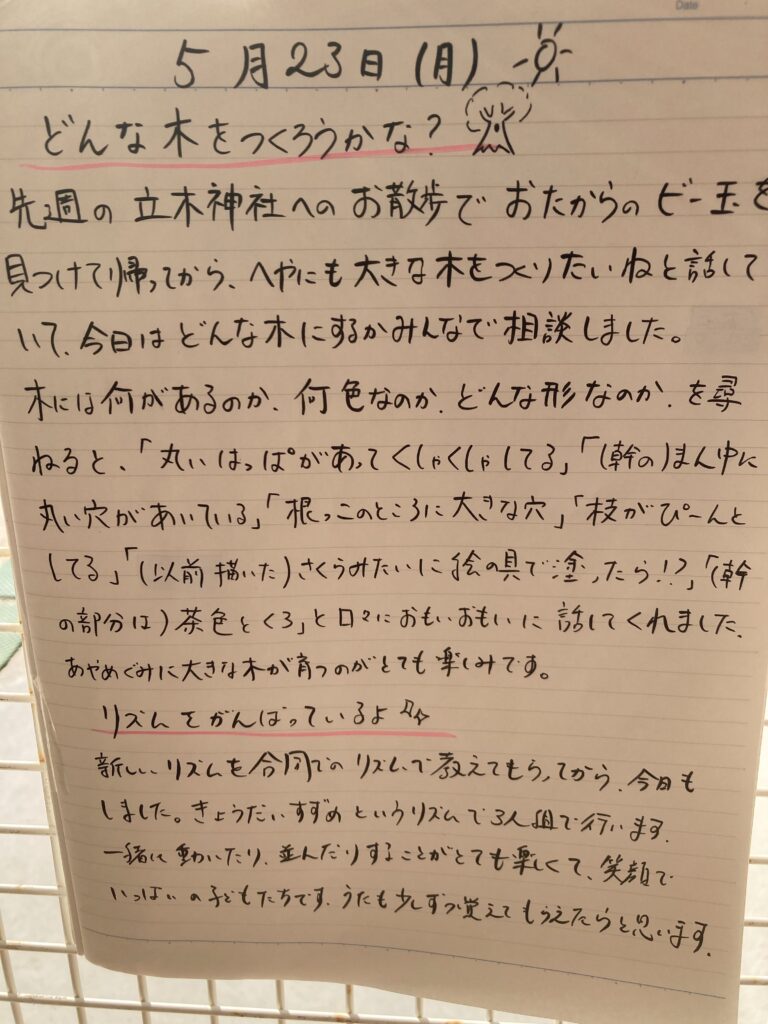 Date
5月23日(月)
どんな木をつくろうかな?
先週の立木神社へのお散歩でおたからのビー玉を
見つけて帰ってから、へやにも大きな木をつくりたいねと話して
いて、今日はどんな木にするかみんなで相談しました。
木には何があるのか、何色なのか、どんな形なのか、を尋
ねると、「丸いはっぱがあってくしゃくしゃしてる」「(幹の)まん中に
丸い穴があいている」「根っこのところに大きな穴」「枝がぴーんと
してる」「(以前描いた)さくらみたいに絵の具で塗ったら!?」「(幹
の部分は)茶色とくろ」と口々におもいおもいに話してくれました。
あやめぐみに大きな木が育つのがとても楽しみです。
リズムをがんばっているよ
新しいリズムを合同でのリズムで教えてもらってから、今日も
しました。きょうだいすずめというリズムで3人組で行います。
一緒に動いたり、並んだりすることがとても楽しくて、笑顔で
いっぱいの子どもたちです。うたも少しずつ覚えてもらえたらと思います。